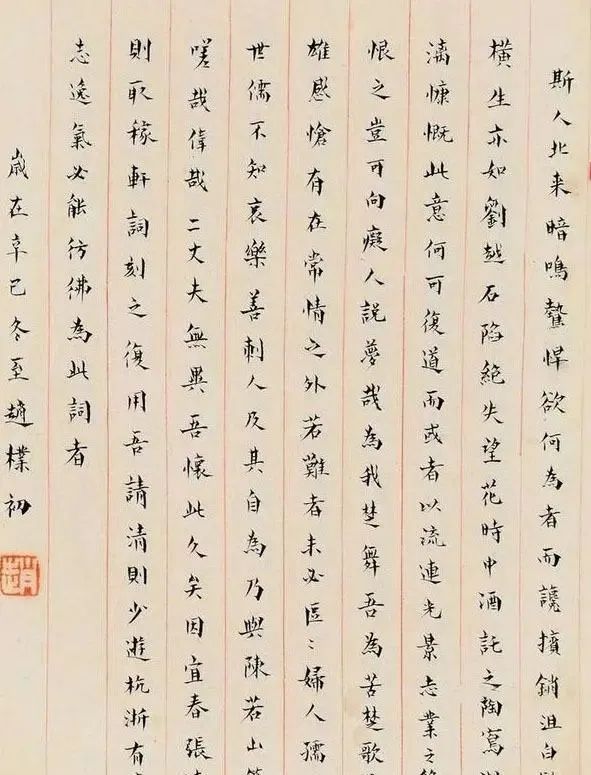 斯人北来暗鳴鷙悍欲何為者而讒擯銷沮白
橫生亦如劉越石陷絕失望花時中酒託之陶寫
漓慷慨此意何可復道而或者以流連光景志業之
恨之豈可向癡人說夢哉為我楚舞吾為苦楚歌
雄感愴有在常情之外若難者未必區〻婦人孺
世儒不知哀樂善刺人及其自為乃與陳若山
嗟哉偉哉二丈夫無異吾懷此久矣因宜春張
則取稼軒詞刻之復用吾請清則少遊杭浙有
志逸氣必能彷彿為此詞者
歲在辛巳冬至趙樸初